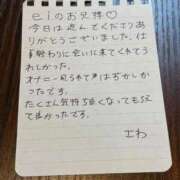 eiのお兄様♡
今日は遊んでくださり
ありがとうございました。
お仕事終わりに会いに来てくれてう
れしかった。
オナニー見られて声はずかしか
ったです。
たくさん気持ち良くなってもらえ
て良かったです。
さわ